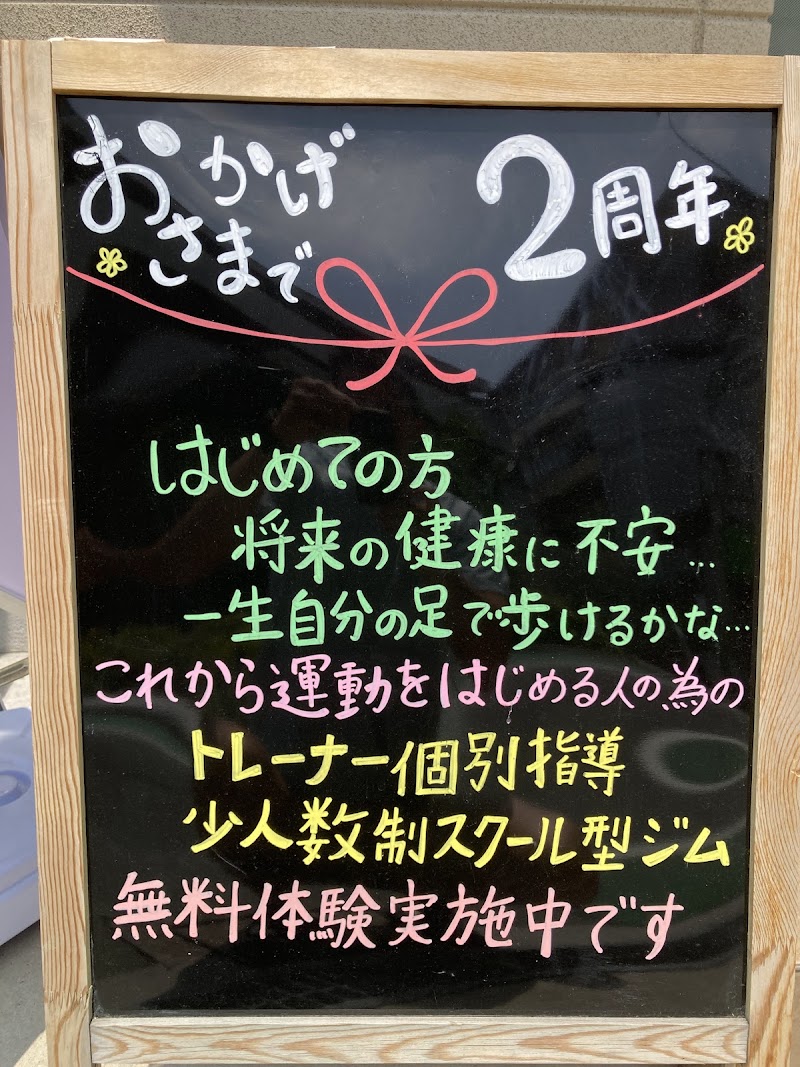 おかげ
さまで
2周年
はじめての方
将来の健康に不安…
一生自分の足で歩けるかな…
これから運動をはじめる人の為の
トレーナー個別指導
少人数制スクール型ジム
無料体験実施中です